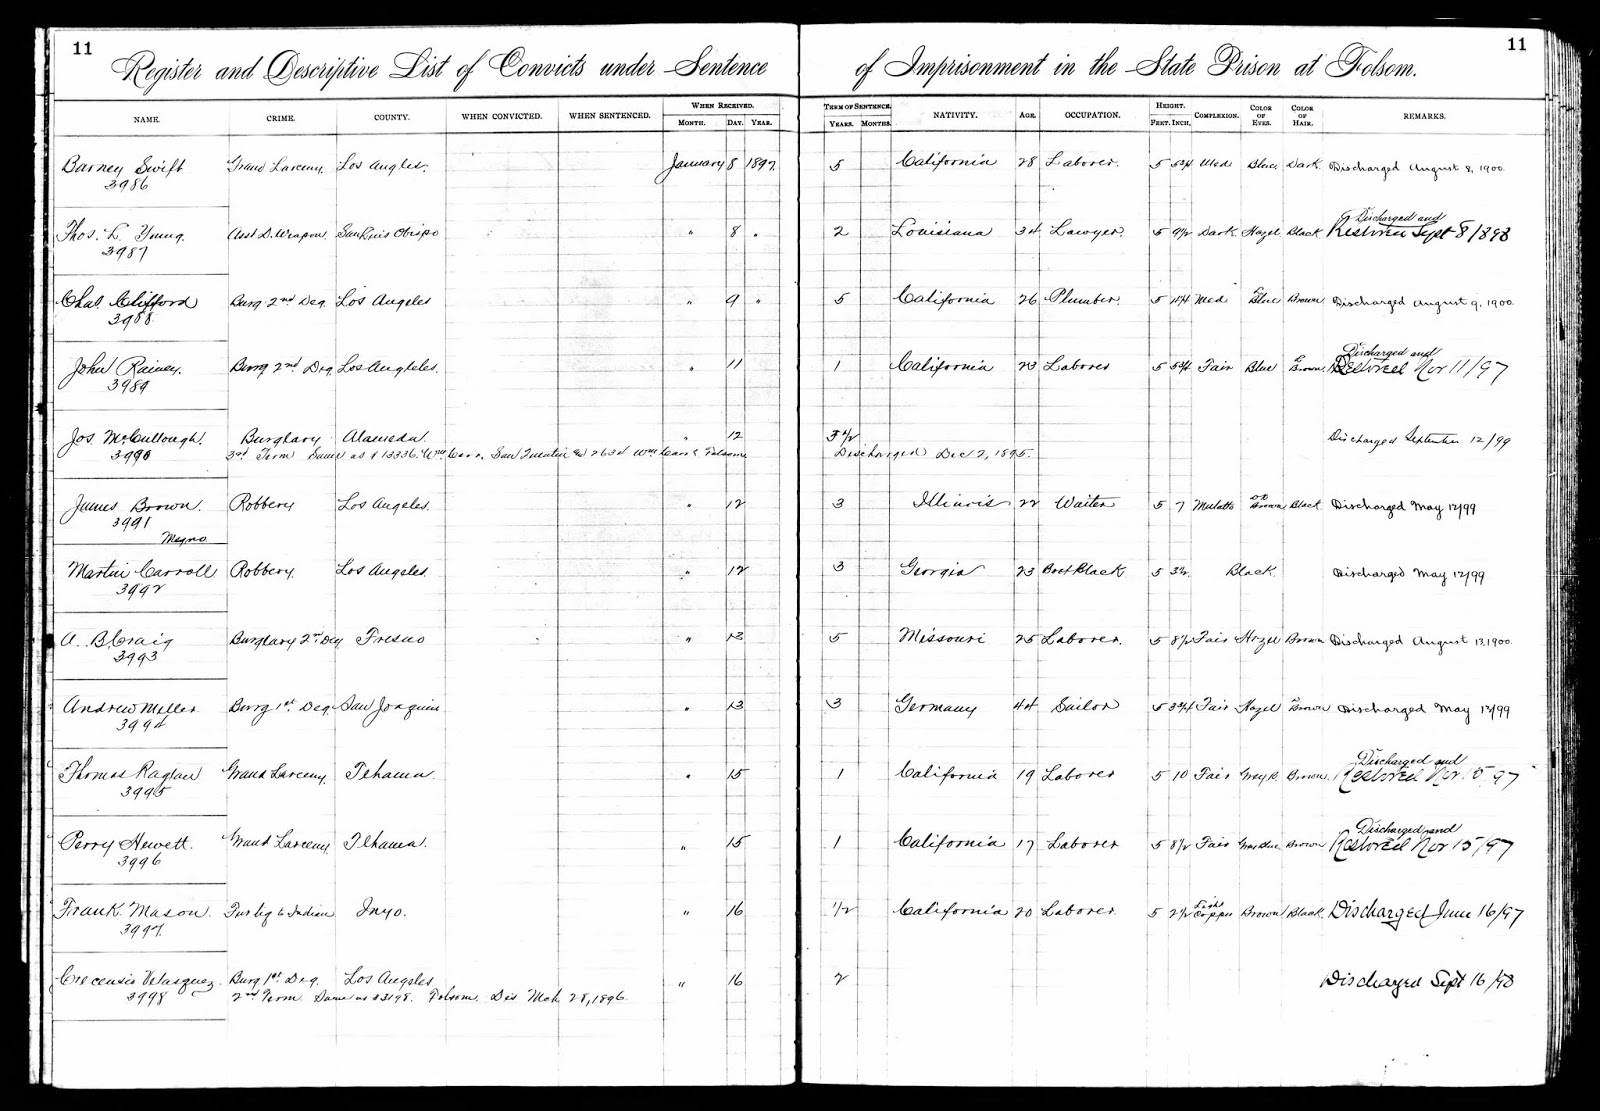 11 11
Register and Descriptive List of Convicts under Sentence of Imprisonment in the State Prison at Folsom.
WHEN RECEIVED. TERM OF SENTENCE. HEIGHT. COLOR OF EYES. COLOR OF HAIR.
NAME. CRIME. COUNTY. WHEN CONVICTED. WHEN SENTENCED. MONTH. DAY. YEAR. YEARS. MONTHS. NATIVITY. AGE. OCCUPATION. FEET. INCH. COMPLEXION. REMARKS.
Barney Swift Grand Larceny. Los Angles. January 8 1897. 5 California 28 Laborer. 5 5¾ Med Blue. Dark. Discharged August 8, 1900.
3986
Discharged and
Thos. L. Young. Asst D. Weapon. San Luis Obispo " 8 " 2 Louisiana 34 Lawyer. 5 9½ Dark Hazel Black Restored Sept 8/1898
3987
Chas. Clifford Burg 2nd Deg. Los Angeles " 9 " 5 California 26 Plumber. 5 4¼ Med Blue Brown Discharged August 9, 1900.
3988
Discharged and
John Rainey. Burg 2nd Deg Los Angleles. " 11 1 California 23 Laborer 5 5¾ Fair Blue Brown Restored Nov 11/97
3989
Jos. McCullough. Burglary Alameda. " 12 Discharged September 12/99
3990 3rd Term Same as # 13336. Wm Carr. San Quentin & 2634 Wm Carr Folsom Discharged Dec 2, 1895.
James Brown. Robbery Los Angeles. " 12 3 Illinois 22 Waiter 5 7 Mulatto Brown Black Discharged May 12/99
3991
Negro
Martin Carroll Robbery. Los Angeles. " 12 3 Georgia 23 Boot Black 5 3½ Black. Discharged May 12/99
3992
A. B. Craig Burglary 2nd Deg Fresno " 13 5 Missouri 25 Laborer. 5 8½ Fair Hazel Brown Discharged August 13, 1900.
3993
Andrew Miller Burg 1st Deg. San Joaquin " 13 3 Germany 44 Sailor 5 3¾ Fair Hazel Brown Discharged May 13/99
3994
Discharged and
Thomas Raglan Grand Larceny. Tehama. " 15 1 California 19 Laborer 5 10 Fair Brown. Restored Nov 15, 97
3995
Discharged and
Perry Hewett. Grand Larceny Tehama. " 15 1 California 17 Laborer 5 8½ Fair Gray Blue Brown Restored Nov 15/97
3996
Light
Frank Mason. Fur lig to Indian Inyo. " 16 ½ California 20 Laborer. 5 2½ Copper Brown Black. Discharged June 16/97
3997.
Crecensio Velasquez. Burg 1st Deg. Los Angeles " 16 2 Discharged Sept 16/98
3998 2nd Term Same as #3198. Folsom. Dis Mch 28, 1896.